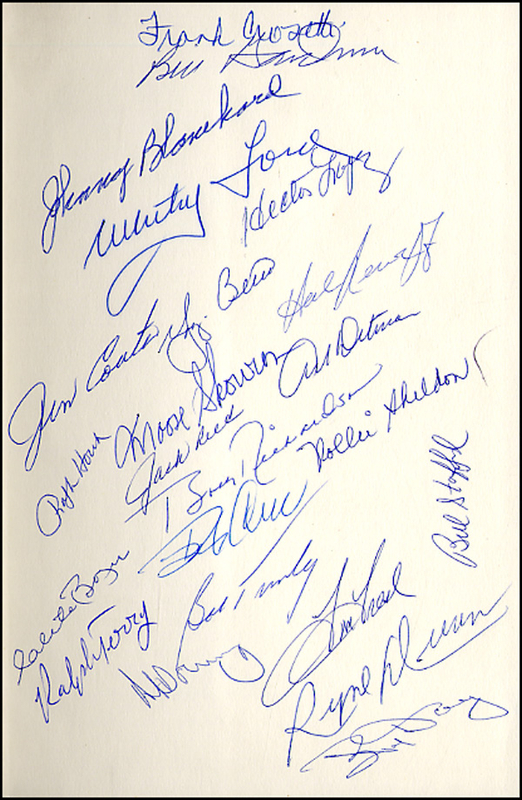 Frank Crosetti
Bill
Johnny Blanchard
Whitey Ford
Hector Lopez
Yogi Berra
Hal Reniff
Jim Coates
Moose Skowron
Art Ditmar
Jack Reed
Ralph Houk
Bobby Richardson
Rollie Sheldon
Bill Stafford
Clete Boyer
Ralph Terry
Bob Turley
Al Downing
Ryne Duren